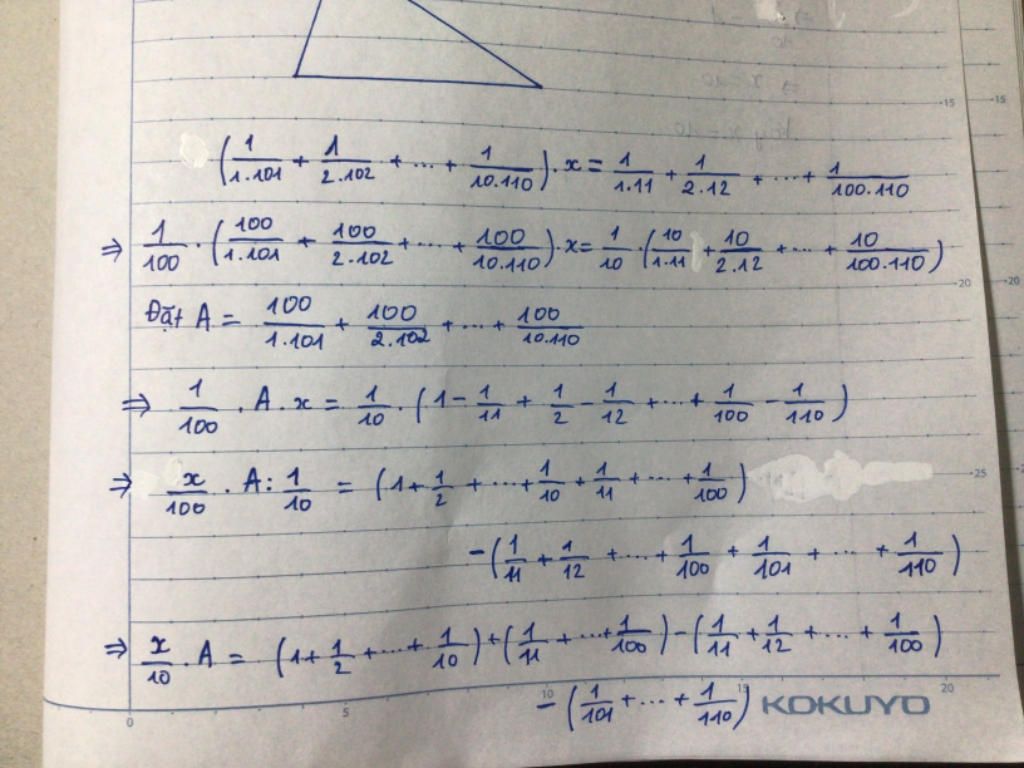 (1/1.101 + 1/2.102 + ... + 1/10.110) . x = 1/1.11 + 1/2.12 + ... + 1/100.110
⇒ 1/100 . (100/1.101 + 100/2.102 + ... + 100/10.110) . x = 1/10 . (10/1.11 + 10/2.12 + ... + 10/100.110)
Đặt A = 100/1.101 + 100/2.102 + ... + 100/10.110
⇒ 1/100 . A . x = 1/10 . (1 - 1/11 + 1/2 - 1/12 + ... + 1/100 - 1/110)
⇒ x/100 . A : 1/10 = (1 + 1/2 + ... + 1/10 + 1/11 + ... + 1/100)
- (1/11 + 1/12 + ... + 1/100 + 1/101 + ... + 1/110)
⇒ x/10 . A = (1 + 1/2 + ... + 1/10) + (1/11 + ... + 1/100) - (1/11 + 1/12 + ... + 1/100)
- (1/101 + ... + 1/110)
KOKUYO
0 5 10 15 20
15
20
25
15
20